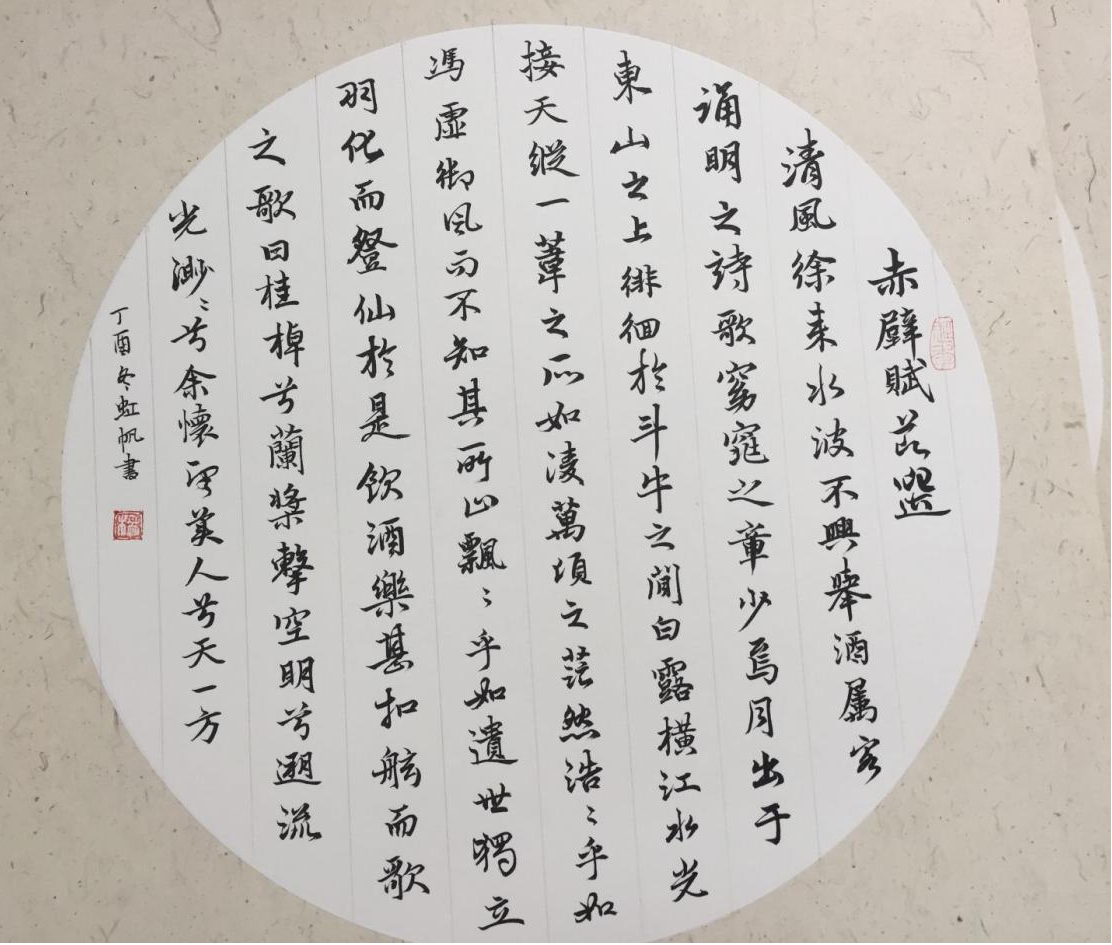 赤壁賦节選
清風徐来水波不興舉酒属客
誦明之詩歌窈窕之章少焉月出于
東山之上徘徊於斗牛之間白露橫江水光
接天縱一葦之所如凌萬頃之茫然浩〻乎如
馮虛御风而不知其所止飄〻乎如遺世獨立
羽化而登仙於是飲酒樂甚扣舷而歌
之歌曰桂棹兮蘭槳擊空明兮遡流
光渺〻兮余懷望美人兮天一方
丁酉冬虹帆書